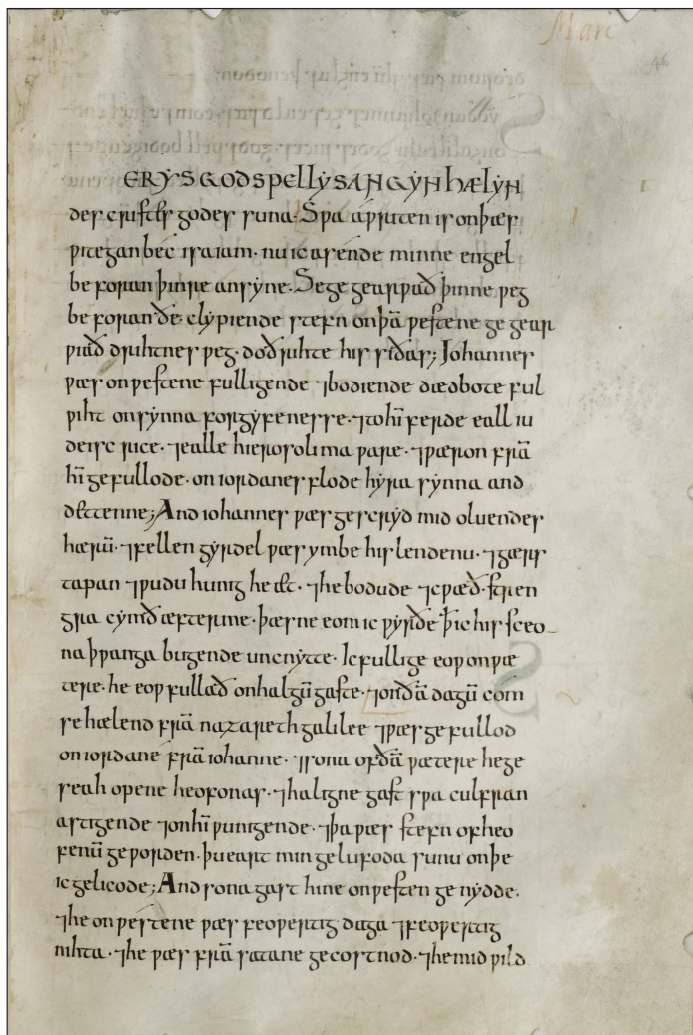 Marc
46
ERYS GODSPELLYS ANGYN HÆLYN
des cristes godes suna. Sƿa aƿriten is on þæs
ƿitegan béc isaiam. nu ic asende minne engel
beforan þinre ansyne. Se gegearƿað þinne ƿeg
beforan ðe. clypiende stefn on þā ƿestene gegear
ƿiað drihtnes ƿeg. doð rihte his siðas; Iohannes
ƿæs on ƿestene fulligende ⁊ bodiende dædbote ful
ƿiht on synna forgyfenesse. ⁊ to hī ferde eall iu
deisc rice. ⁊ ealle hierosolima ƿare. ⁊ ƿæron frā
hī gefullode. on iordanes flode hyra synna and
dettenne; And iohannes ƿæs gescryd mid oluendes
hærū. ⁊ fellen gyrdel ƿæs ymbe his lendenu. ⁊ gærs
tapan ⁊ ƿudu hunig he æt. ⁊ he bodude ⁊ cƿæð. stren
gra cymð æfter me. þæs ne eom ic ƿyrðe ꝥ ic his sceo
na þƿanga bugende uncnytte. Ic fullige eoƿ on ƿæ
tere. he eoƿ fullað on halgū gaste. ⁊ on ðā dagū com
se hælend frā nazareth galilee ⁊ ƿæs gefullod
on iordane frā iohanne. ⁊ sona of ðā ƿætere he ge
seah opene heofonas. ⁊ haligne gast sƿa culfran
astigende ⁊ on hī ƿunigende. ⁊ þa ƿæs stefn of heo
fenū geƿorden. þu eart min gelufoda sunu on þe
ic gelicode; And sona gast hine on ƿesten genydde.
⁊ he on ƿestene ƿæs feoƿertig daga ⁊ feoƿertig
nihta. ⁊ he ƿæs frā satane gecostnod. ⁊ he mid ƿild